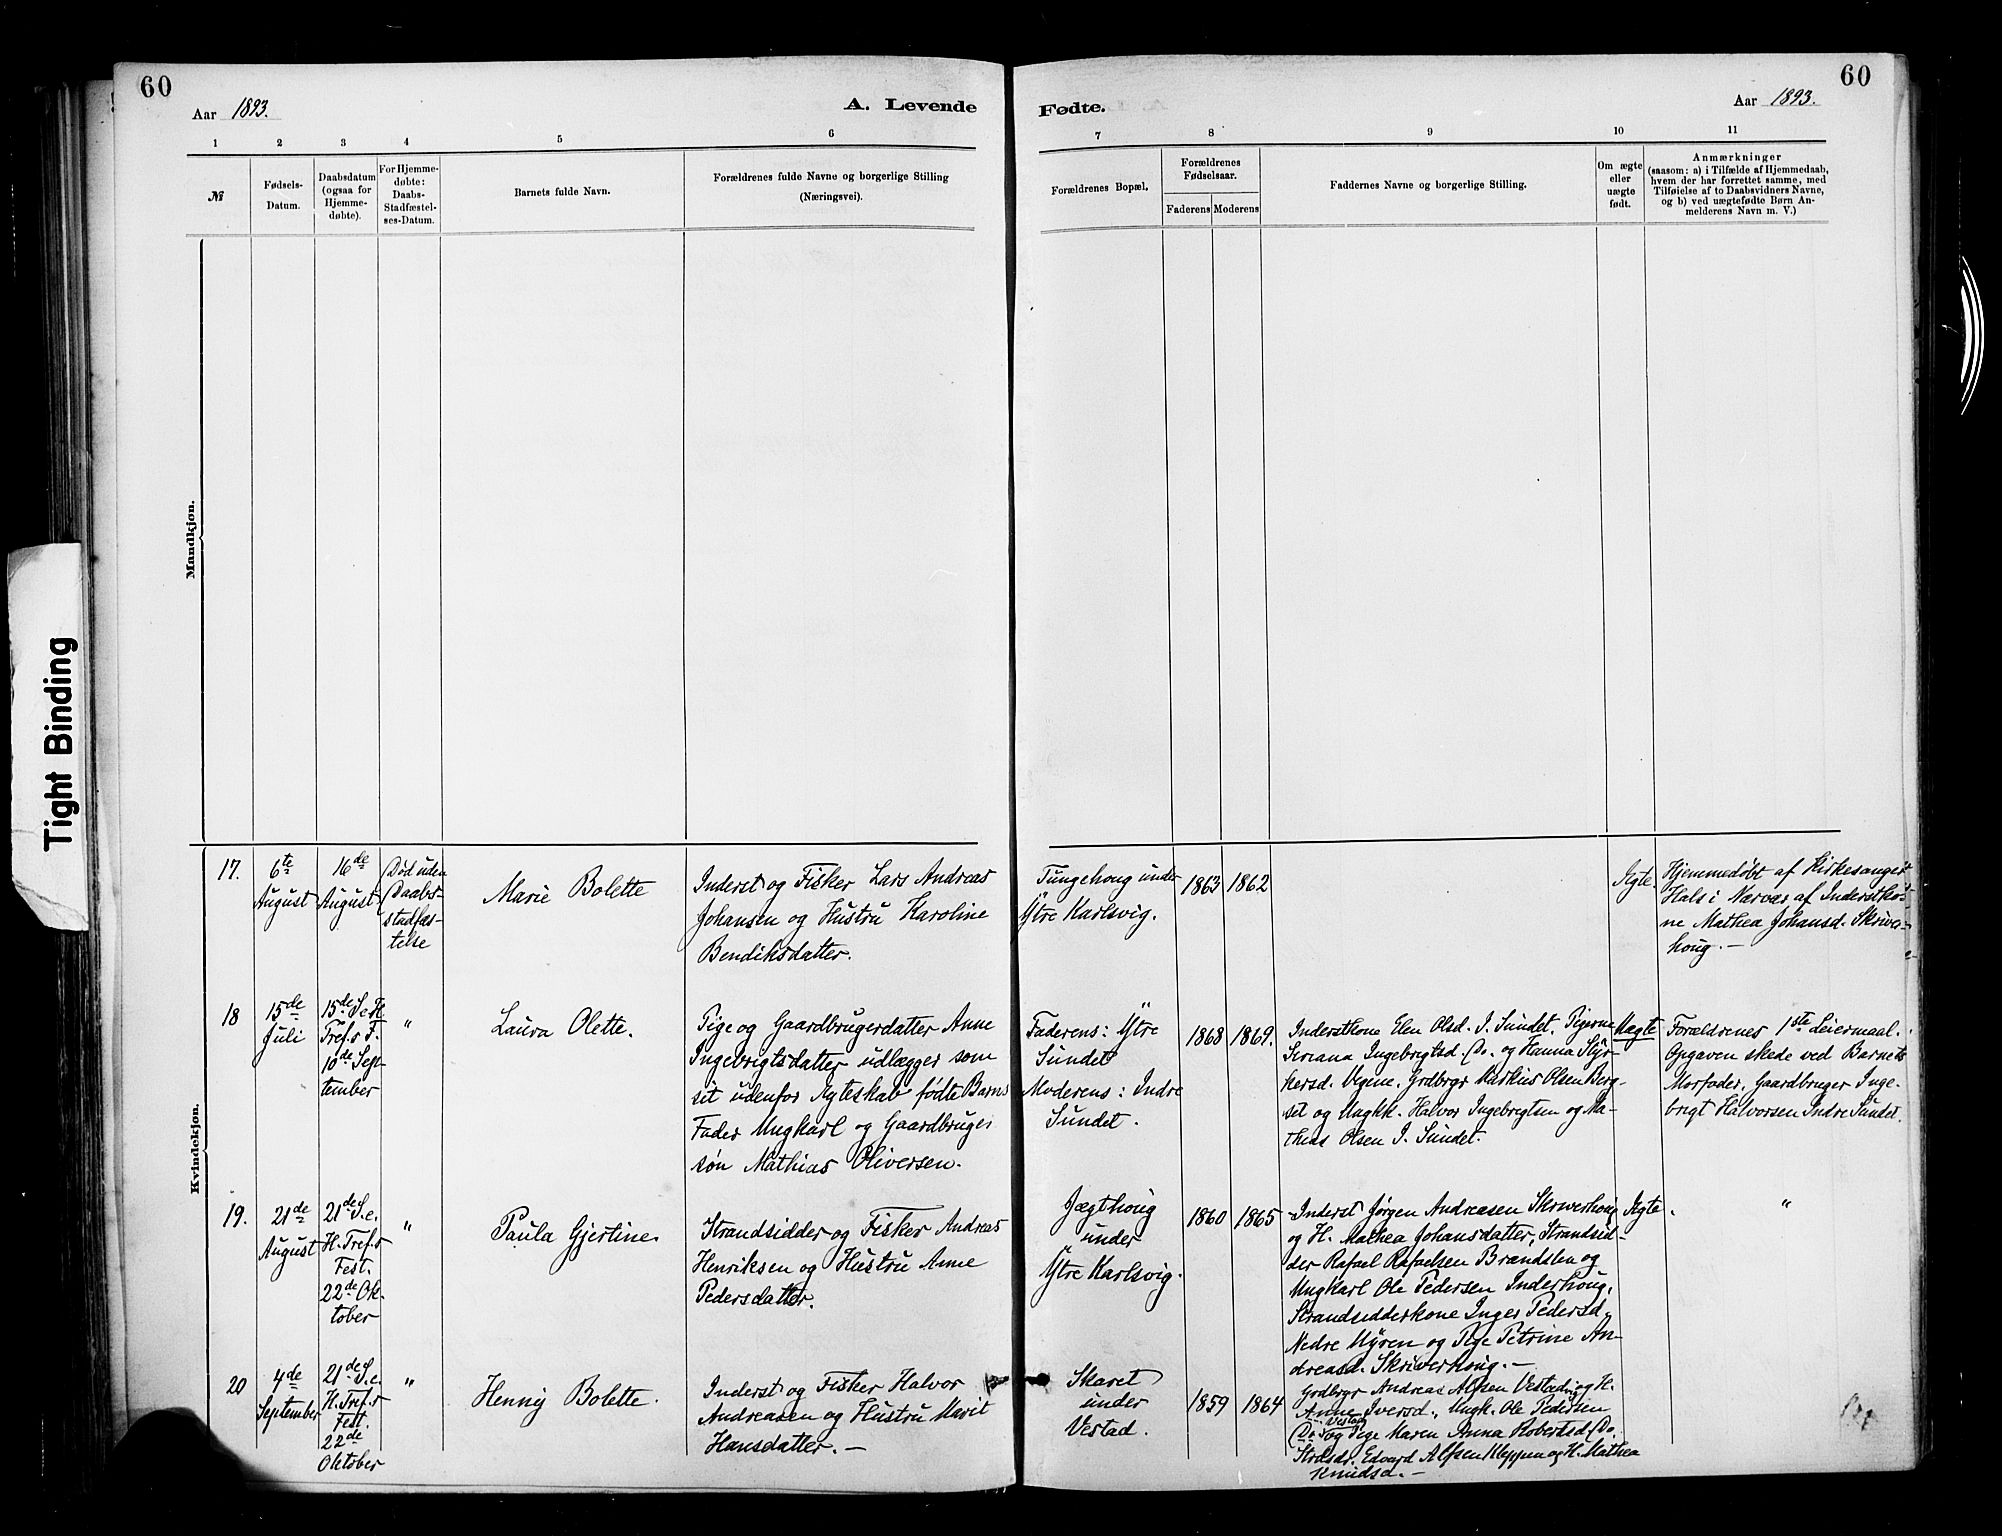 60
60
Aar 1893.
A. Levende
Fødte.
Aar 1893.
1 2 3 4 5 6 7 8 9 10 11
№
Fødsels-
Datum.
Daabsdatum
(ogsaa for
Hjemme-
døbte).
For Hjemme-
døbte:
Daabs-
Stadfæstel-
ses-Datum.
Barnets fulde Navn.
Forældrenes fulde Navne og borgerlige Stilling
(Næringsvei).
Forældrenes Bopæl.
Forældrenes
Fødselsaar.
Faderens Moderens
Faddernes Navne og borgerlige Stilling.
Om ægte
eller
uægte
født.
Anmærkninger
(saasom: a) i Tilfælde af Hjemmedaab,
hvem der har forrettet samme, med
Tilføielse af to Daabsvidners Navne,
og b) ved uægtefødte Børn An-
melderens Navn m. V.)
Mandkjøn.
Tight Binding
Kvindekjøn.
17.
6te
August
16de
August
Død uden
Daabs-
stadfæs-
telse
Marie Bolette
Inderst og Fisker Lars Andreas
Johansen og Hustru Karoline
Bendiksdatter.
Tungehoug under
Ytre Karlsvig.
1863 1862
Ægte.
Hjemmedøbt af Kirkesanger
Hals i Nærvær af Inderstko-
ne Mathea Johansd. Skriver-
houg. —
18
15de
Juli
15de S. e. H.
Tref.s F.
10de Sep-
tember
"
Laura Olette.
Pige og Gaardbrugerdatter Anne
Ingebrigtsdatter udlægger som
sit udenfor Ægteskab fødte Barns
Fader Ungkarl og Gaardbruger
søn Mathias Oliversen.
Faderens: Ytre
Sundet
Moderens: Indre
Sundet.
1868 1869.
Inderstkone Elen Olsd. I. Sundet. Pigerne
Seriana Ingebrigtsd. Do. og Hanna Styr-
kersd. Vegene. Grdbrgr Markus Olsen Berg-
set og Ungk. Halvor Ingebrigtsen og Ma-
thias Olsen I. Sundet.
Uægte
Forældrenes 1ste Leiermaal.
Opgaven skede ved Barnets
Morfader, Gaardbruger Inge-
brigt Halvorsen Indre Sundet.
19.
21de
August
21de S. e.
H. Tref.s
Fest.
22de Ok-
tober
"
Paula Gjertine.
Strandsidder og Fisker Andreas
Henriksen og Hustru Anne
Pedersdatter.
Jægthoug
under
Ytre Karlsvig.
1860 1865
Inderst Jørgen Andreasen Skriverhoug
og H. Mathea Johansdatter, Strandsid-
der Rafael Rafaelsen Brandsten og
Ungkarl Ole Pedersen Inderhoug,
Strandsidderkone Inger Pedersd.
Nedre Myren og Pige Petrine An-
dreasd. Skriverhoug. —
Ægte.
"
20
4de
September
21de S. e.
H. Tref.s
Fest.
22de
Oktober
"
Henny Bolette.
Inderst og Fisker Halvor
Andreasen og Hustru Marit
Hansdatter. —
Skaret
under
Vestad.
1859 1864
Grdbrgr Andreas Alfsen Vestad og H.
Anne Iversd., Ungk. Ole Pedersen
Do. Vestad og Pige Maren Anna Robertsd. Do.
Strdsdr. Edvard Alfsen Kleppen og H. Mathea
Knudsd. —